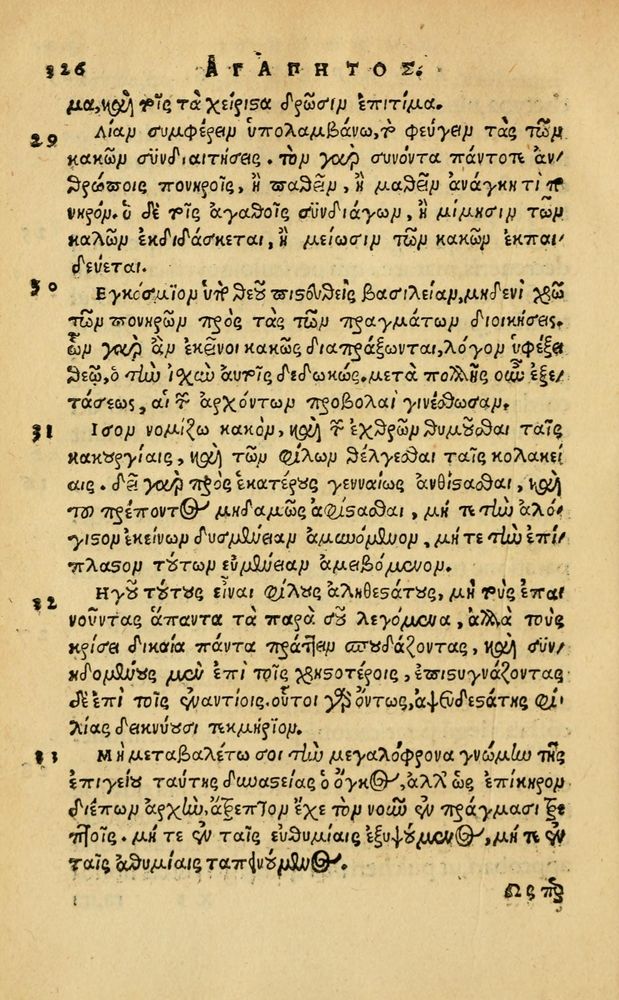 326 ΑΓΑΠΗΤΟΣ.
μα, καὶ τοῖς τὰ χείριστα δρῶσιν ἐπίτιμα.
29 Λίαν συμφέρειν ὑπολαμβάνω, τὸ φεύγειν τὰς τῶν
κακῶν συνδιαιτήσεις. τὸν γὰρ συνόντα πάντοτε ἀν/
θρώποις πονηροῖς, ἢ παθεῖν, ἢ μαθεῖν ἀνάγκη τὶ πο
νηρόν. ὁ δὲ τοῖς ἀγαθοῖς συνδιάγων, ἢ μίμησιν τῶν
καλῶν ἐκδιδάσκεται, ἢ μείωσιν τῶν κακῶν ἐκπαι/
δεύεται.
30 Εγκόσμιον ὑπὸ θεοῦ πιστευθεὶς βασιλείαν, μηδενὶ χρῶ
τῶν πονηρῶν πρὸς τὰς τῶν πραγμάτων διοικήσεις.
ὧν γὰρ ἂν ἐκεῖνοι κακῶς διαπράξωνται, λόγον ὑφέξει
θεῷ, ὁ τὴν ἰχὺν αὐτοῖς δεδωκώς. μετὰ πολλῆς οὖν ἐξε/
τάσεως, αἱ τῶν ἀρχόντων προβολαὶ γινέσθωσαν.
31 Ισον νομίζω κακὸν, καὶ τὸ ἐχθρῶν θυμοῦσθαι ταῖς
κακουργίαις, καὶ τῶν φίλων θέλγεσθαι ταῖς κολακεί
αις. δεῖ γὰρ πρὸς ἑκατέρους γενναίως ἀνθίστασθαι, καὶ
τοῦ πρέποντος μηδαμῶς ἀφίστασθαι, μή τε τὴν ἀλό/
γιστον ἐκείνων δυσμένειαν ἀμυνόμενον, μήτε τὴν ἐπί/
πλαστον τούτων εὐμένειαν ἀμειβόμενον.
32 Ηγοῦ τούτους εἶναι φίλους ἀληθεστάτους, μὴ τοὺς ἐπαι
νοῦντας ἅπαντα τὰ παρὰ σοῦ λεγόμενα, ἀλλὰ τοὺς
κρίσει δικαίᾳ πάντα πράττειν σπουδάζοντας, καὶ συν/
ηδομένους μὲν ἐπὶ τοῖς χρηστοτέροις, ἐπιστυγνάζοντας
δὲ ἐπὶ τοῖς ἐναντίοις. οὗτοι γὰρ ὄντως, ἀψευδεστάτης φι/
λίας δεικνύουσι τεκμήριον.
33 Μὴ μεταβαλέτω σοι τὴν μεγαλόφρονα γνώμην τῆς
ἐπιγείου ταύτης δυναστείας ὁ ὄγκος, ἀλλ' ὡς ἐπίκηρον
διέπων ἀρχὴν, ἄτρεπτον ἔχε τὸν νοῦν ἐν πράγμασι τρε
πτοῖς. μή τε ἐν ταῖς εὐθυμίαις ἐξυψούμενος, μή τε ἐν
ταῖς ἀθυμίαις ταπεινούμενος.
Ως πρ